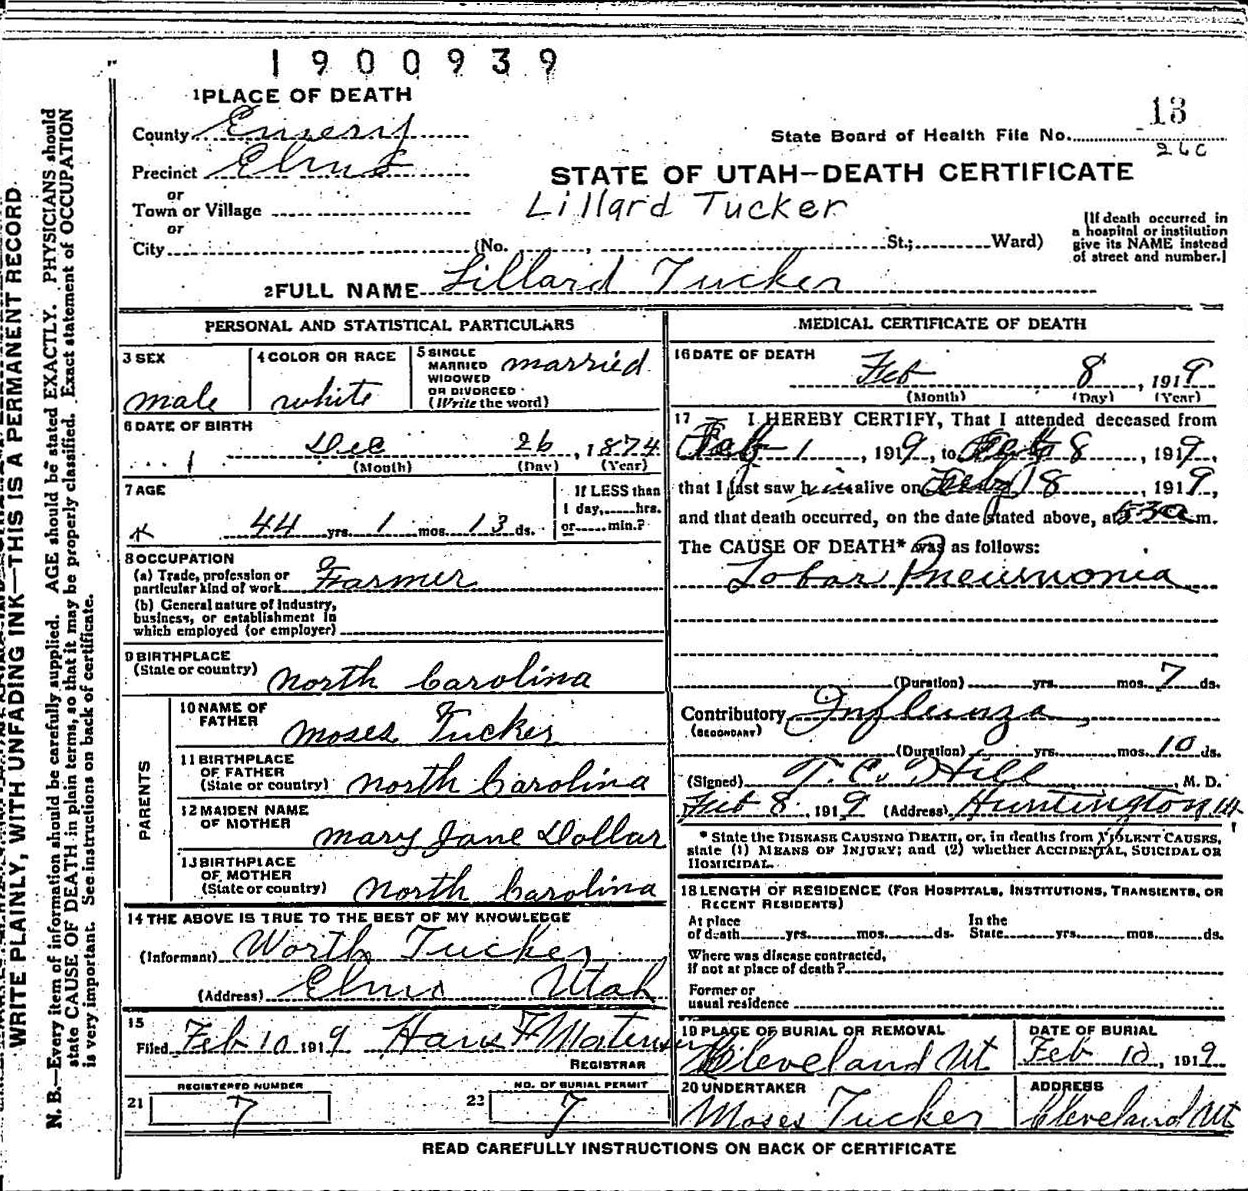 1900939
1 PLACE OF DEATH
County Emery
Precinct Elmo
or
Town or Village
or
City (No. , St.; Ward)
State Board of Health File No. 13
260
STATE OF UTAH—DEATH CERTIFICATE
Lillard Tucker
[If death occurred in
a hospital or institution
give its NAME instead
of street and number.]
2 FULL NAME Lillard Tucker
PERSONAL AND STATISTICAL PARTICULARS
3 SEX
male
4 COLOR OR RACE
white
5 SINGLE
MARRIED
WIDOWED
OR DIVORCED
(Write the word)
married
6 DATE OF BIRTH
Dec 26, 1874
(Month) (Day) (Year)
7 AGE
44 yrs. 1 mos. 13 ds.
If LESS than
1 day, hrs.
or min.?
8 OCCUPATION
(a) Trade, profession or
particular kind of work Farmer
(b) General nature of industry,
business, or establishment in
which employed (or employer)
9 BIRTHPLACE
(State or country) North Carolina
PARENTS
10 NAME OF
FATHER Moses Tucker
11 BIRTHPLACE
OF FATHER
(State or country) North Carolina
12 MAIDEN NAME
OF MOTHER Mary Jane Dollar
13 BIRTHPLACE
OF MOTHER
(State or country) North Carolina
14 THE ABOVE IS TRUE TO THE BEST OF MY KNOWLEDGE
(Informant) Worth Tucker
(Address) Elmo Utah
15
Filed Feb 10 1919 Hans F
REGISTRAR
REGISTERED NUMBER
21 7
NO. OF BURIAL PERMIT
23 7
MEDICAL CERTIFICATE OF DEATH
16 DATE OF DEATH
Feb 8, 1919
(Month) (Day) (Year)
17 I HEREBY CERTIFY, That I attended deceased from
Feb 1, 1919, to Feb 8, 1919,
that I last saw him alive on Feb 8, 1919,
and that death occurred, on the date stated above, at 530 a m.
The CAUSE OF DEATH* was as follows:
Lobar Pneumonia
(Duration) yrs. mos. 7 ds.
Contributory Influenza
(SECONDARY)
(Duration) yrs. mos. 10 ds.
(Signed) T. C. Hill, M. D.
Feb 8, 1919 (Address) Huntington Ut
* State the DISEASE CAUSING DEATH, or, in deaths from VIOLENT CAUSES,
state (1) MEANS OF INJURY; and (2) whether ACCIDENTAL, SUICIDAL OR
HOMICIDAL.
18 LENGTH OF RESIDENCE (FOR HOSPITALS, INSTITUTIONS, TRANSIENTS, OR
RECENT RESIDENTS)
At place
of death yrs. mos. ds.
In the
State yrs. mos. ds.
Where was disease contracted,
if not at place of death?
Former or
usual residence
19 PLACE OF BURIAL OR REMOVAL
Cleveland Ut
DATE OF BURIAL
Feb 10, 1919
20 UNDERTAKER
Moses Tucker
ADDRESS
Cleveland Ut
READ CAREFULLY INSTRUCTIONS ON BACK OF CERTIFICATE
WRITE PLAINLY, WITH UNFADING INK—THIS IS A PERMANENT RECORD
N. B.—Every item of information should be carefully supplied. AGE should be stated EXACTLY. PHYSICIANS should
state CAUSE OF DEATH in plain terms, so that it may be properly classified. Exact statement of OCCUPATION
is very important. See instructions on back of certificate.